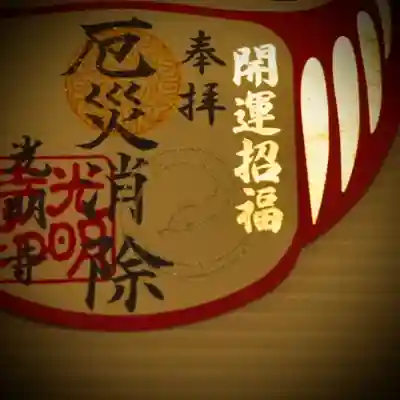 開運招福
奉拝
厄災消除
光明寺
光明